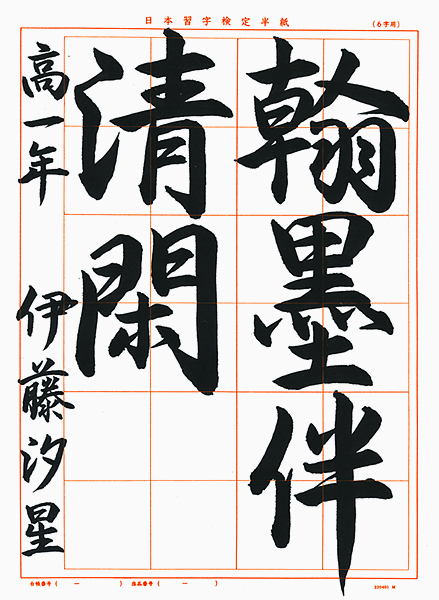 日本習字検定半紙
(6字用)
翰墨伴
清閑
高一年 伊藤汐星
台帳番号( ー ) 作品番号( ー )